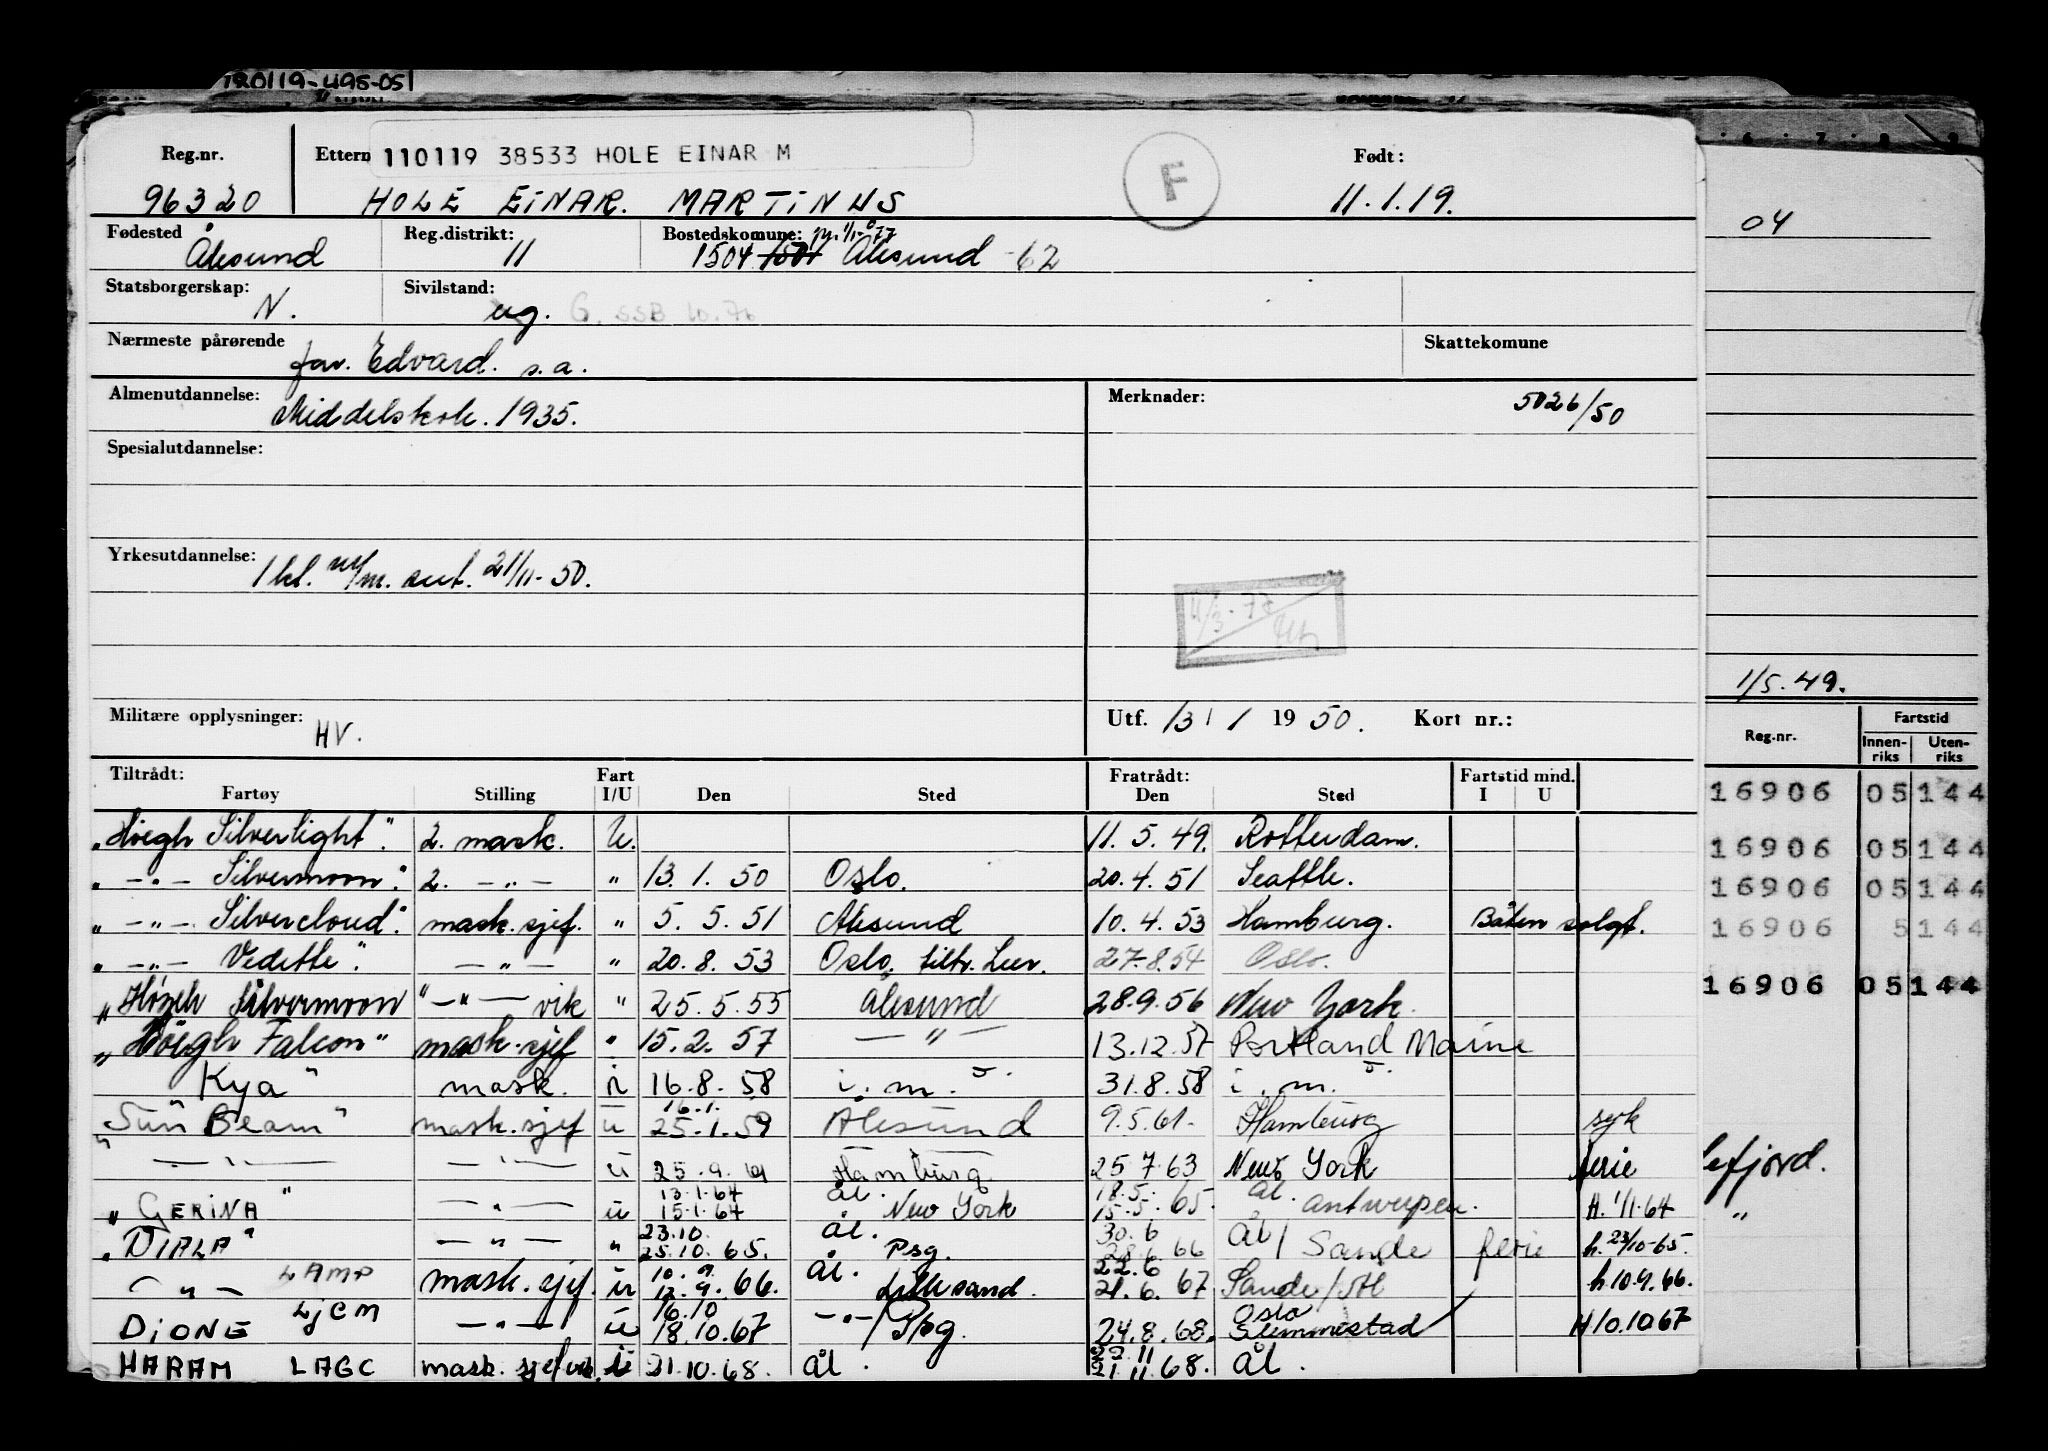 120119-495-051
Reg.nr. Ettern 110119 38533 HOLE EINAR M F Født:
96320 HOLE EINAR. MARTINUS 11.1.19.
04
Fødested Reg.distrikt: Bostedskomune: 1/1-77
Ålesund 11 1504 1501 Ålesund -62
Statsborgerskap: Sivilstand:
N. ug. G. SSB 10.76
Nærmeste pårørende Skattekomune
far. Edvard. s.a.
Almenutdannelse: Merknader: 5026/50
Middelskole. 1935.
Spesialutdannelse:
Yrkesutdannelse:
1 kl. m/m. sert. 21/11-50.
4/3-77
1/5.49.
Militære opplysninger: Utf. 13/1 1950. Kort nr.:
HV.
Reg.nr. Fartstid
Innen-riks Uten-riks
Tiltrådt: Fart Fratrådt: Fartstid mind.
Fartøy Stilling I/U Den Sted Den Sted I U
"Höegh Silverlight". 2. mask. U. 11.5.49. Rotterdam. 16906 05 144
" -"- Silvermoon". 2. -"- " 13.1.50 Oslo. 20.4.51 Seattle. 16906 05 144
" -"- Silvercloud". mask.sjef. " 5.5.51 Ålesund 10.4.53 Hamburg. Båten solgt. 16906 05 144
16906 5 144
" -"- Vedette". -"- " 20.8.53 Oslo. tiltr. Lier. 27.8.54 Oslo.
"Höegh Silvermoon "-"- vik " 25.5.55 Ålesund 28.9.56 New York. 16906 05 144
"Höegh Falcon" mask.sjef " 15.2.57 -"- 13.12.57 Portland Maine
Kya" mask. ü 16.8.58 i.m. 31.8.58 i.m.
16.1.
"Sun Beam" mask.sjef ü 25.1.59 Ålesund 9.5.61. Hamburg syk
-"- -"- ü 25.9.61 Hamburg 25.7.63 New York ferie
efjord.
13.1.64 ål. 18.5. ål.
"GERINA" -"- ü 15.1.64 New York 15.5.65. Antwerpen. H. 1/11-64
"
23.10 ål. 30.6
"DIALA" -"- " 25.10.65. Psg. 28.6.66 ål / Sande ferie h. 23/10-65.
10.9. ål. 22.6
-"- LAMP mask.sjef. ü 12.9.66. Lillesand. 21.6.67 Sande/ål h.10.9.66.
16.10 Oslo
DIONE LJCM -"- ü 18.10.67 -"-/Psg. 24.8.68. Slemmestad H10.1067
22.11
HARAM LAGC mask.sjef vik. ü 21.10.68. ål. 21.11.68. ål.